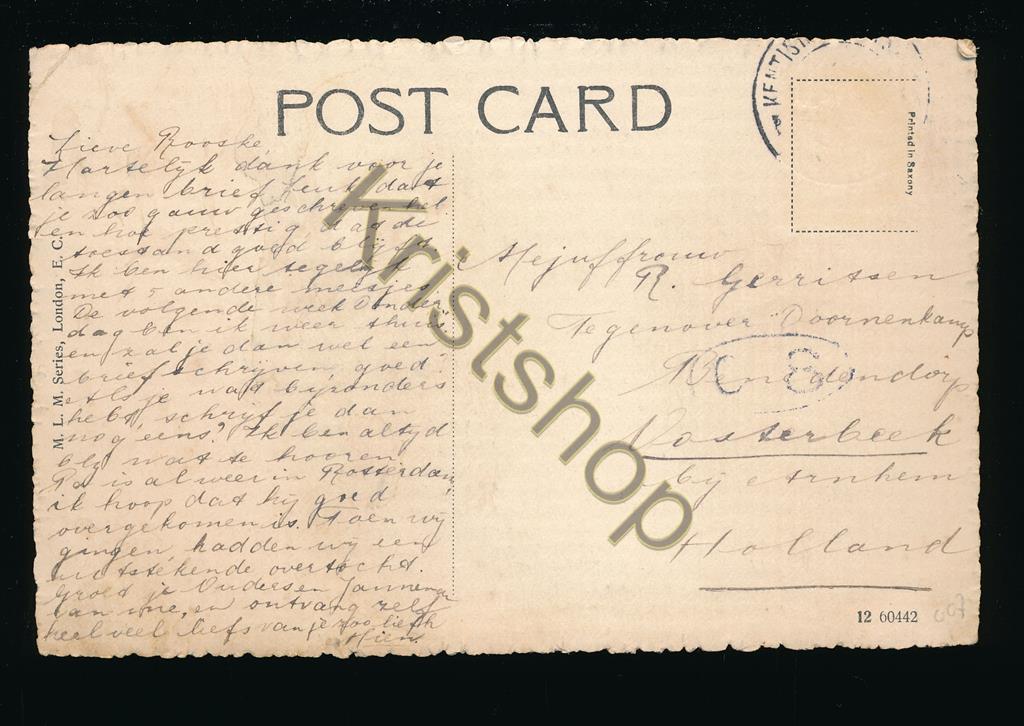 POST CARD
KENTISH
Printed in Saxony
M. L. M. Series, London, E. C.
Lieve Rooske
Hartelijk dank voor je
langen brief leuk dat
je zoo gauw geschreven hebt
en hoe prettig dat de
toestand goed blijft
Ik ben hier tegelijk
met 5 andere meisjes
De volgende week Donder
dag ben ik weer thuis
en zal je dan wel een
brief schrijven, goed?
Als je wat byzonders
hebt, schrijf je dan
nog eens? Ik ben altyd
bly wat te hooren
Pa is al weer in Rotterdam,
ik hoop dat hij goed
overgekomen is. Toen wy
gingen, hadden wy een
uitstekende overtocht.
Groet je Ouders en
van me, en ontvang zelf
heel veel liefs van je zoo liefh
Hien
Mejuffrouw
R. Gerritsen
Tegenover Doornenkamp
Benedendorp
Oosterbeek
bij Arnhem
Holland
12 60442
Kristshop